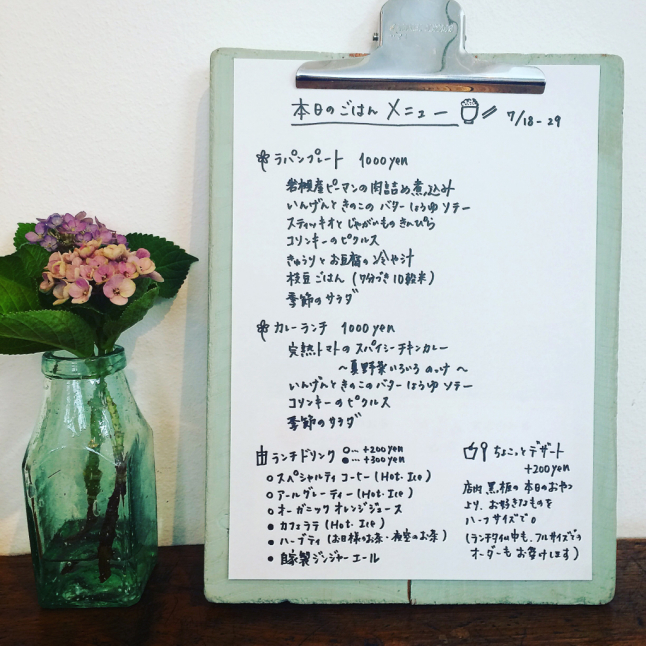 本日のごはん メニュー 7/18-29
ラパンプレート 1000yen
岩槻産ピーマンの肉詰め煮込み
いんげんときのこのバターしょうゆソテー
スティッキオとじゃがいものきんぴら
コリンキーのピクルス
きゅうりとお豆腐の冷や汁
枝豆ごはん (7分づき10穀米)
季節のサラダ
カレーランチ 1000yen
完熟トマトのスパイシーチキンカレー
〜夏野菜いろいろのっけ〜
いんげんときのこのバターしょうゆソテー
コリンキーのピクルス
季節のサラダ
ランチドリンク ○… +200yen
●… +300yen
○ スペシャルティコーヒー (Hot・Ice)
○ アールグレーティー (Hot・Ice)
○ オーガニックオレンジジュース
● カフェラテ (Hot・Ice)
● ハーブティ (お日様のお茶・夜空のお茶)
● 自家製ジンジャーエール
ちょこっとデザート
+200yen
店内黒板の本日のおやつ
より、お好きなものを
ハーフサイズで。
(ランチタイム中も、フルサイズでの
オーダーもお受けします)